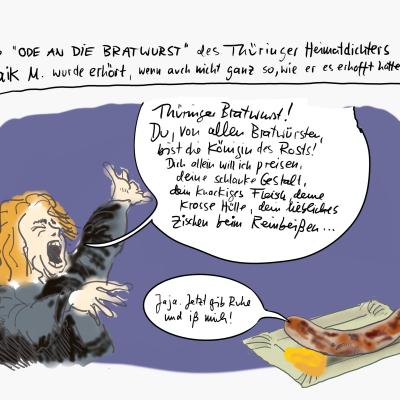 "ODE AN DIE BRATWURST" des Thüringer Heimatdichters
aik M. wurde erhört, wenn auch nicht ganz so, wie er es erhofft hatte
Thüringer Bratwurst!
Du, von allen Bratwürsten,
bist die Königin des Rosts!
Dich allein will ich preisen,
deine schlanke Gestalt,
dein knackiges Fleisch, deine
krosse Hülle, dein liebliches
Zischen beim Reinbeißen...
Jaja. Jetzt gib Ruhe
und iß mich!